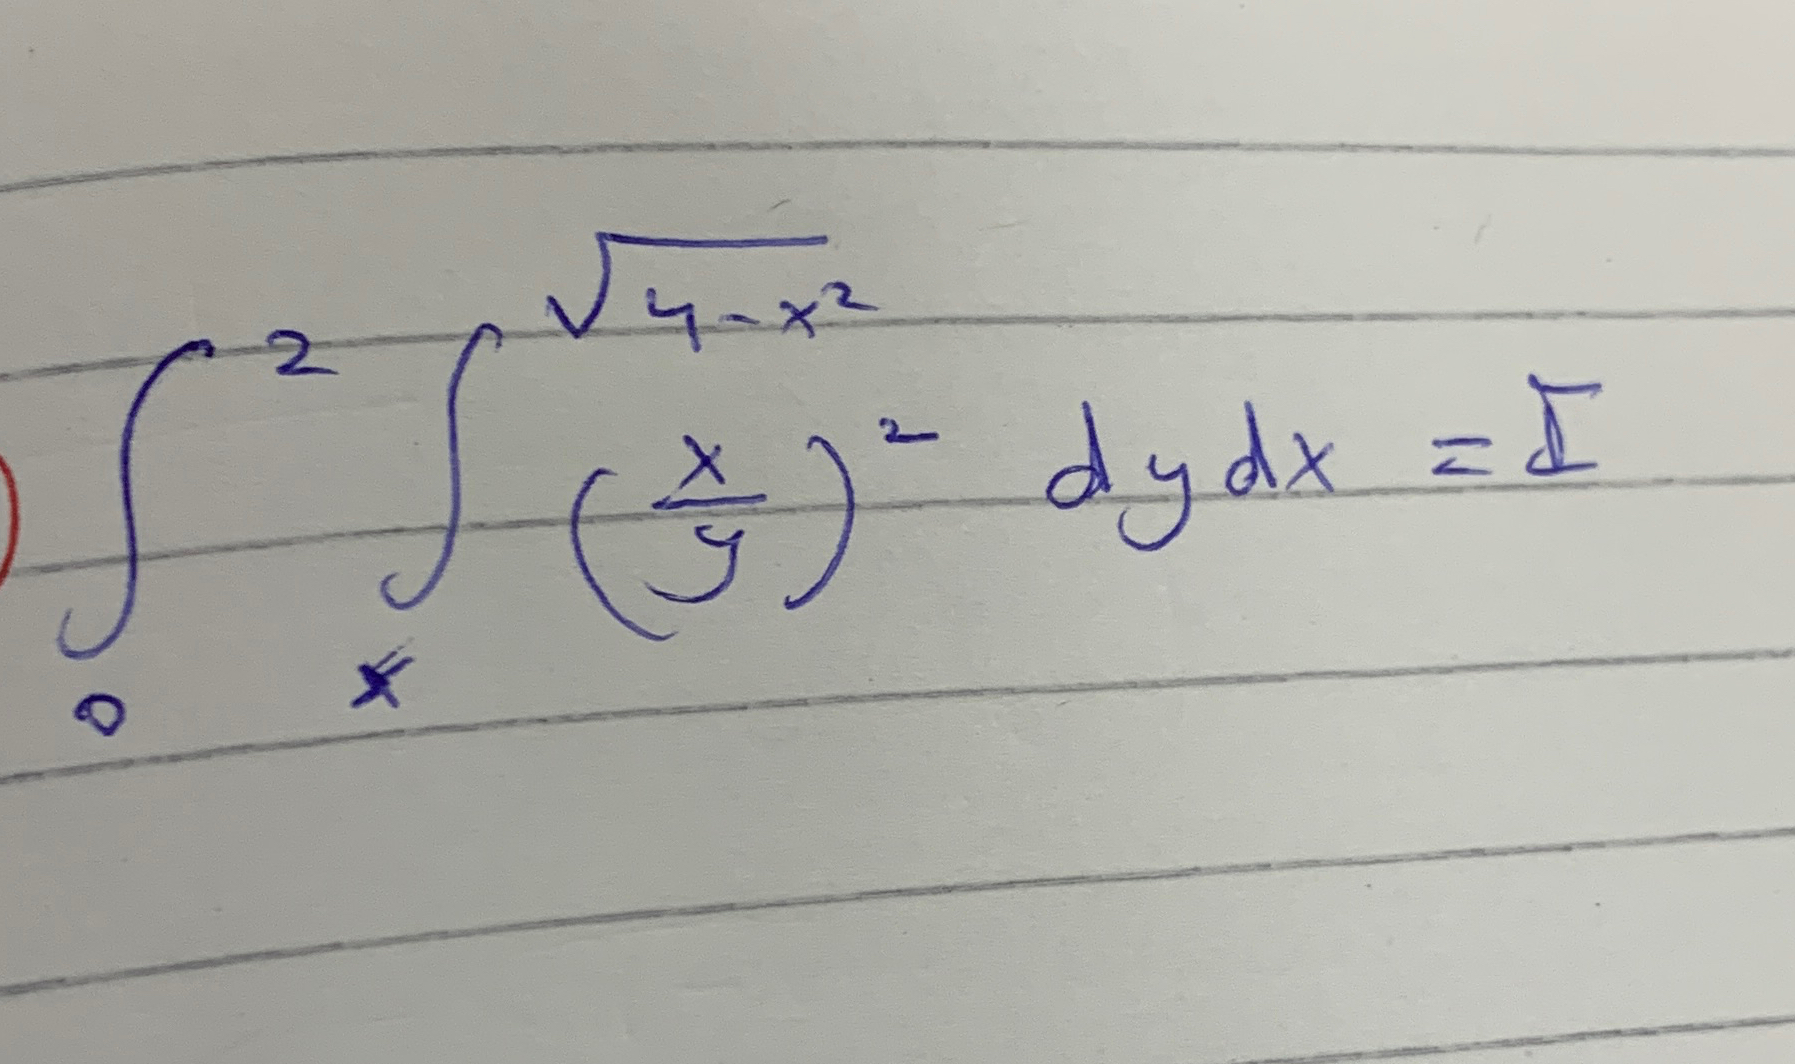 ∫₀² ∫ₓ^√(4-x²) (x/y)² dy dx = I